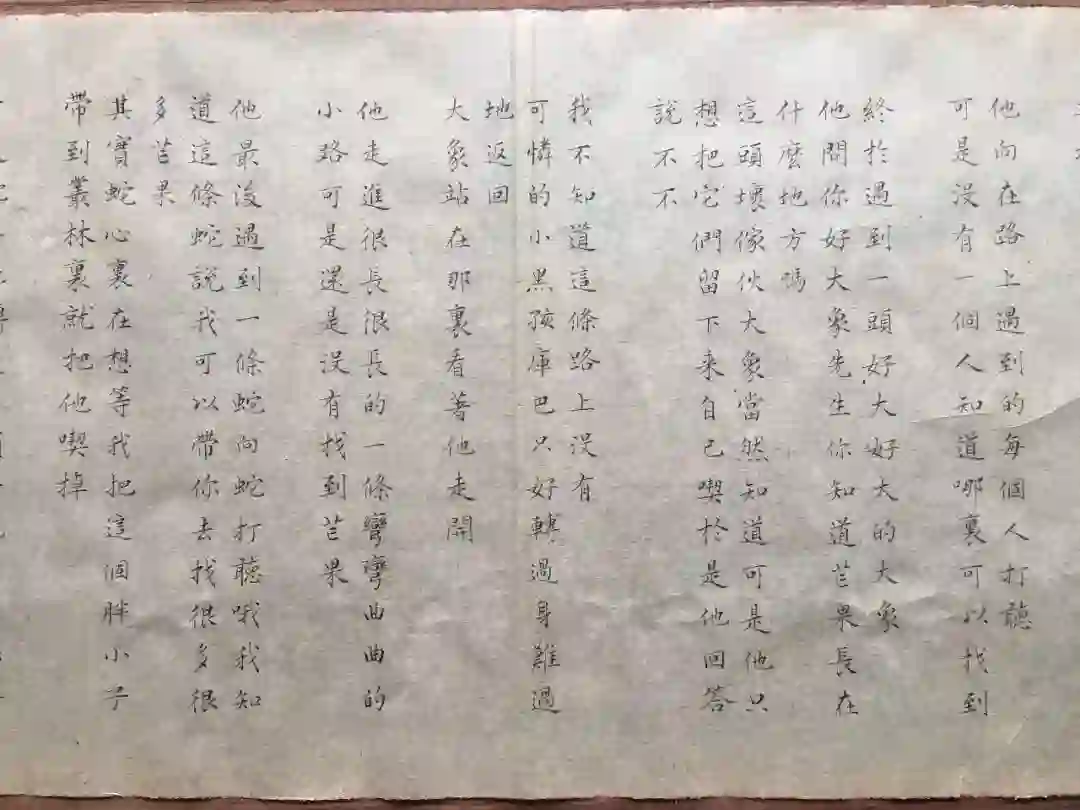 他向在路上遇到的每個人打聽
可是没有一個人知道哪裏可以找到
終於遇到一頭好大好大的大象
他問你好大象先生你知道芒果長在
什麼地方嗎
這頭壞傢伙大象當然知道可是他只
想把它們留下来自己喫於是他回答
說不不
我不知道這條路上没有
可憐的小黑孩庫巴只好轉過身難過
地返回
大象站在那裏看著他走開
他走進很長很長的一條彎彎曲曲的
小路可是還是没有找到芒果
他最後遇到一條蛇向蛇打聽哦我知
道這條蛇說我可以帶你去找很多很
多芒果
其實蛇心裏在想等我把這個胖小子
帶到叢林裏就把他喫掉